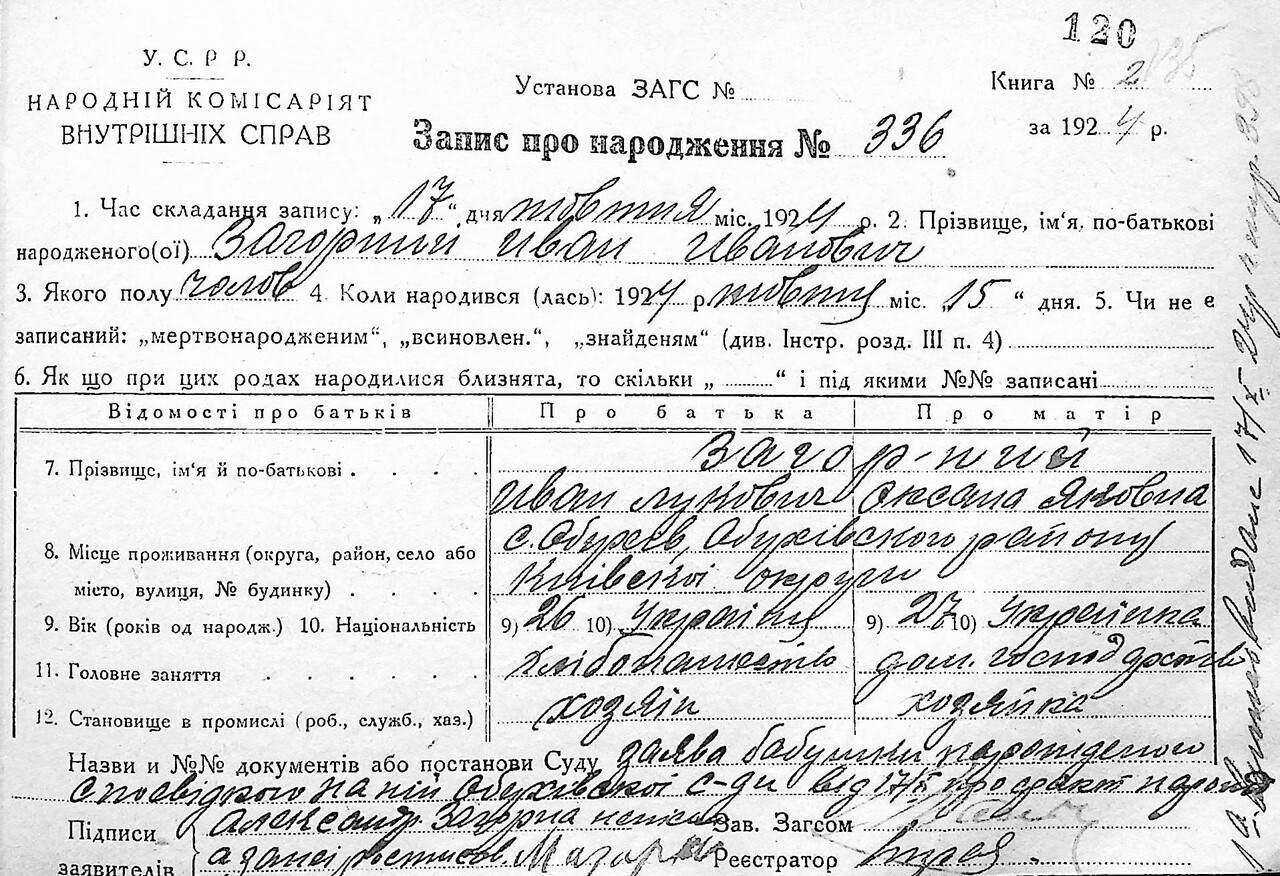 120
У. С. Р Р.
НАРОДНІЙ КОМІСАРІЯТ
ВНУТРІШНІХ СПРАВ
Установа ЗАГС №
Книга № 2
135
за 1924 р.
Запис про народження № 336
1. Час складання запису: „17“ дня жовтня міс. 1924 р. 2. Прізвище, ім'я, по-батькові
народженого(ої) Загорний Иван Иванович
3. Якого полу чолов 4. Коли народився (лась): 1924 р жовтня міс. „15“ дня. 5. Чи не є
записаний: „мертвонародженим“, „всиновлен.“, „знайденям“ (див. Інстр. розд. III п. 4)
6. Як що при цих родах народилися близнята, то скільки „ “ і під якими №№ записані
Відомості про батьків Про батька Про матір
7. Прізвище, ім'я й по-батькові Загорний
Иван Лукович Оксана Яковна
8. Місце проживання (округа, район, село або с. Обухів, Обухівского району
місто, вулиця, № будинку) Київскої округи
9. Вік (років од народж.) 10. Національність 9) 26 10) Українця 9) 27 10) Українка
11. Головне заняття хлібопашество дом. господарство
12. Становище в промислі (роб., служб., хаз.) хозяін хозяйка
Назви и №№ документів або постанови Суду заява бабушки
Обухівскої с-ди від 17/X
Підписи Александр Загорна Зав. Загсом
заявителів Реєстратор
17/X